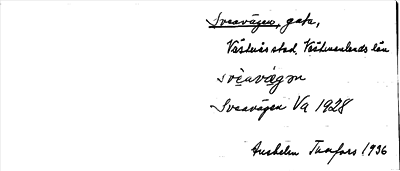 Sveavägen, gata,
Västerås stad. Västmanlands län
svèavägɘn
Sveavägen Va 1928
Tunfors 1936